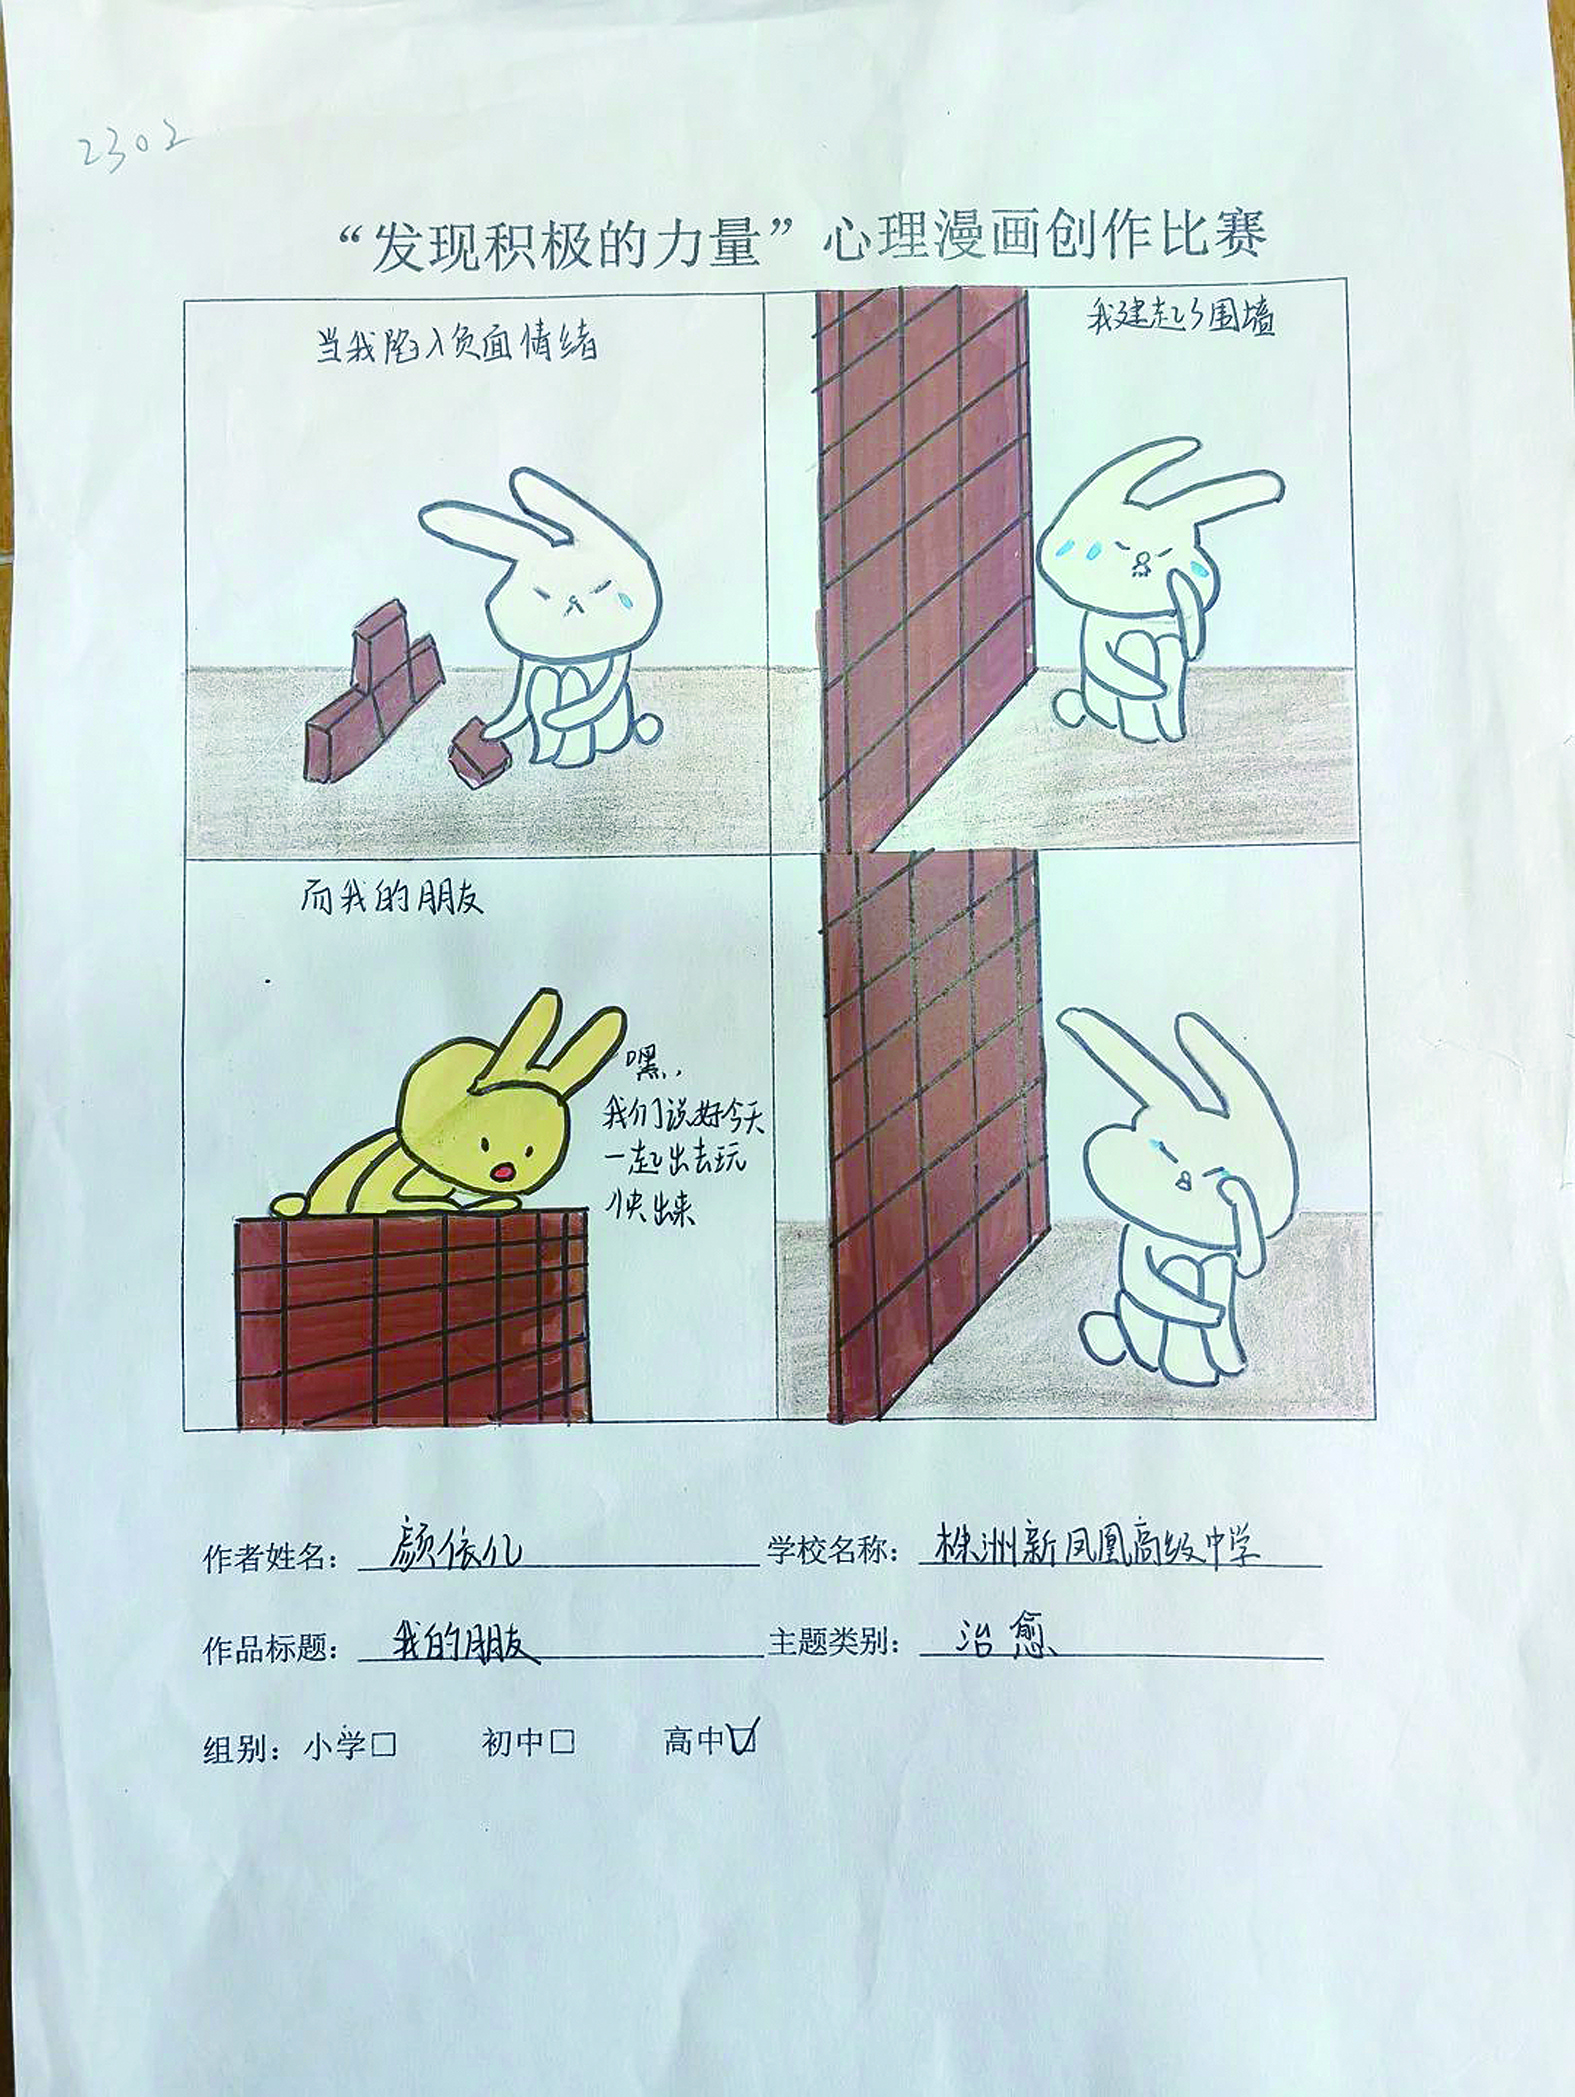 2302
“发现积极的力量”心理漫画创作比赛
当我陷入负面情绪
我建起了围墙
而我的朋友
嘿,,
我们说好今天
一起出去玩
快出来
作者姓名：颜依儿 学校名称：株洲新凤凰高级中学
作品标题：我的朋友 主题类别：治愈
组别：小学□ 初中□ 高中☑